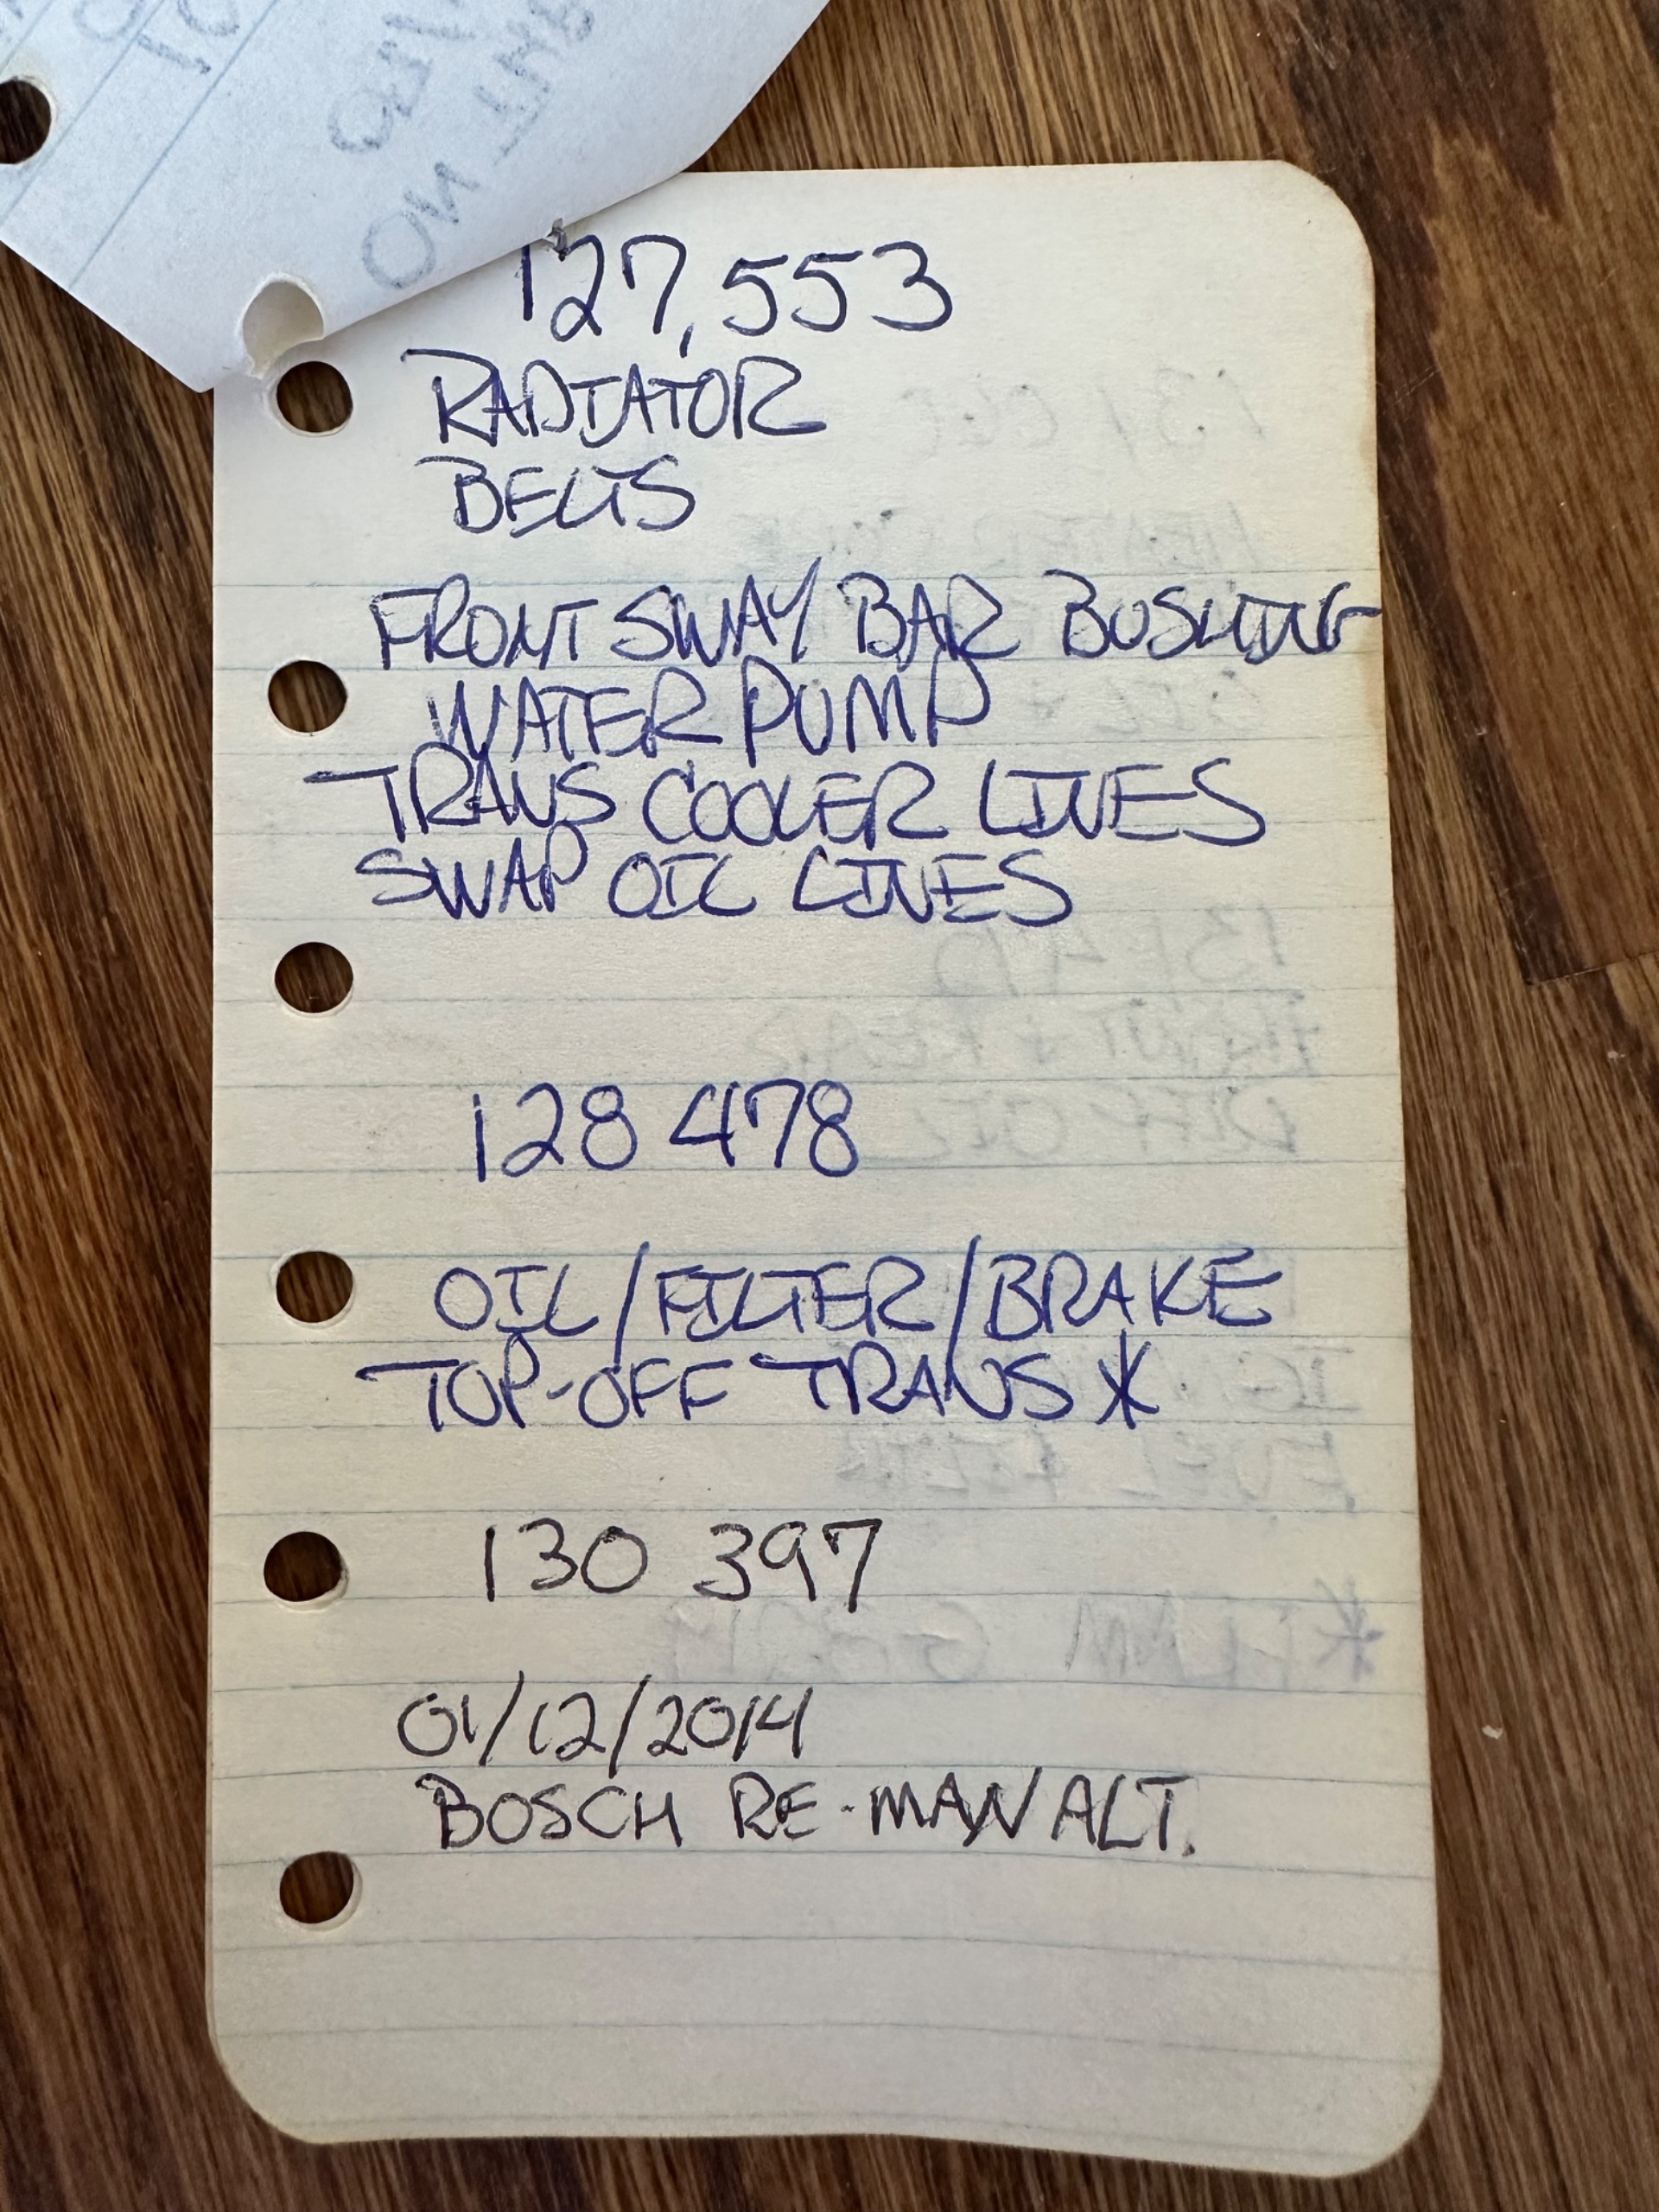 127,553
RADIATOR
BELTS
FRONT SWAY BAR BUSHING
WATER PUMP
TRANS COOLER LINES
SWAP OIL LINES
128 478
OIL/FILTER/BRAKE
TOP-OFF TRANS *
130 397
01/12/2014
BOSCH RE-MAN ALT.